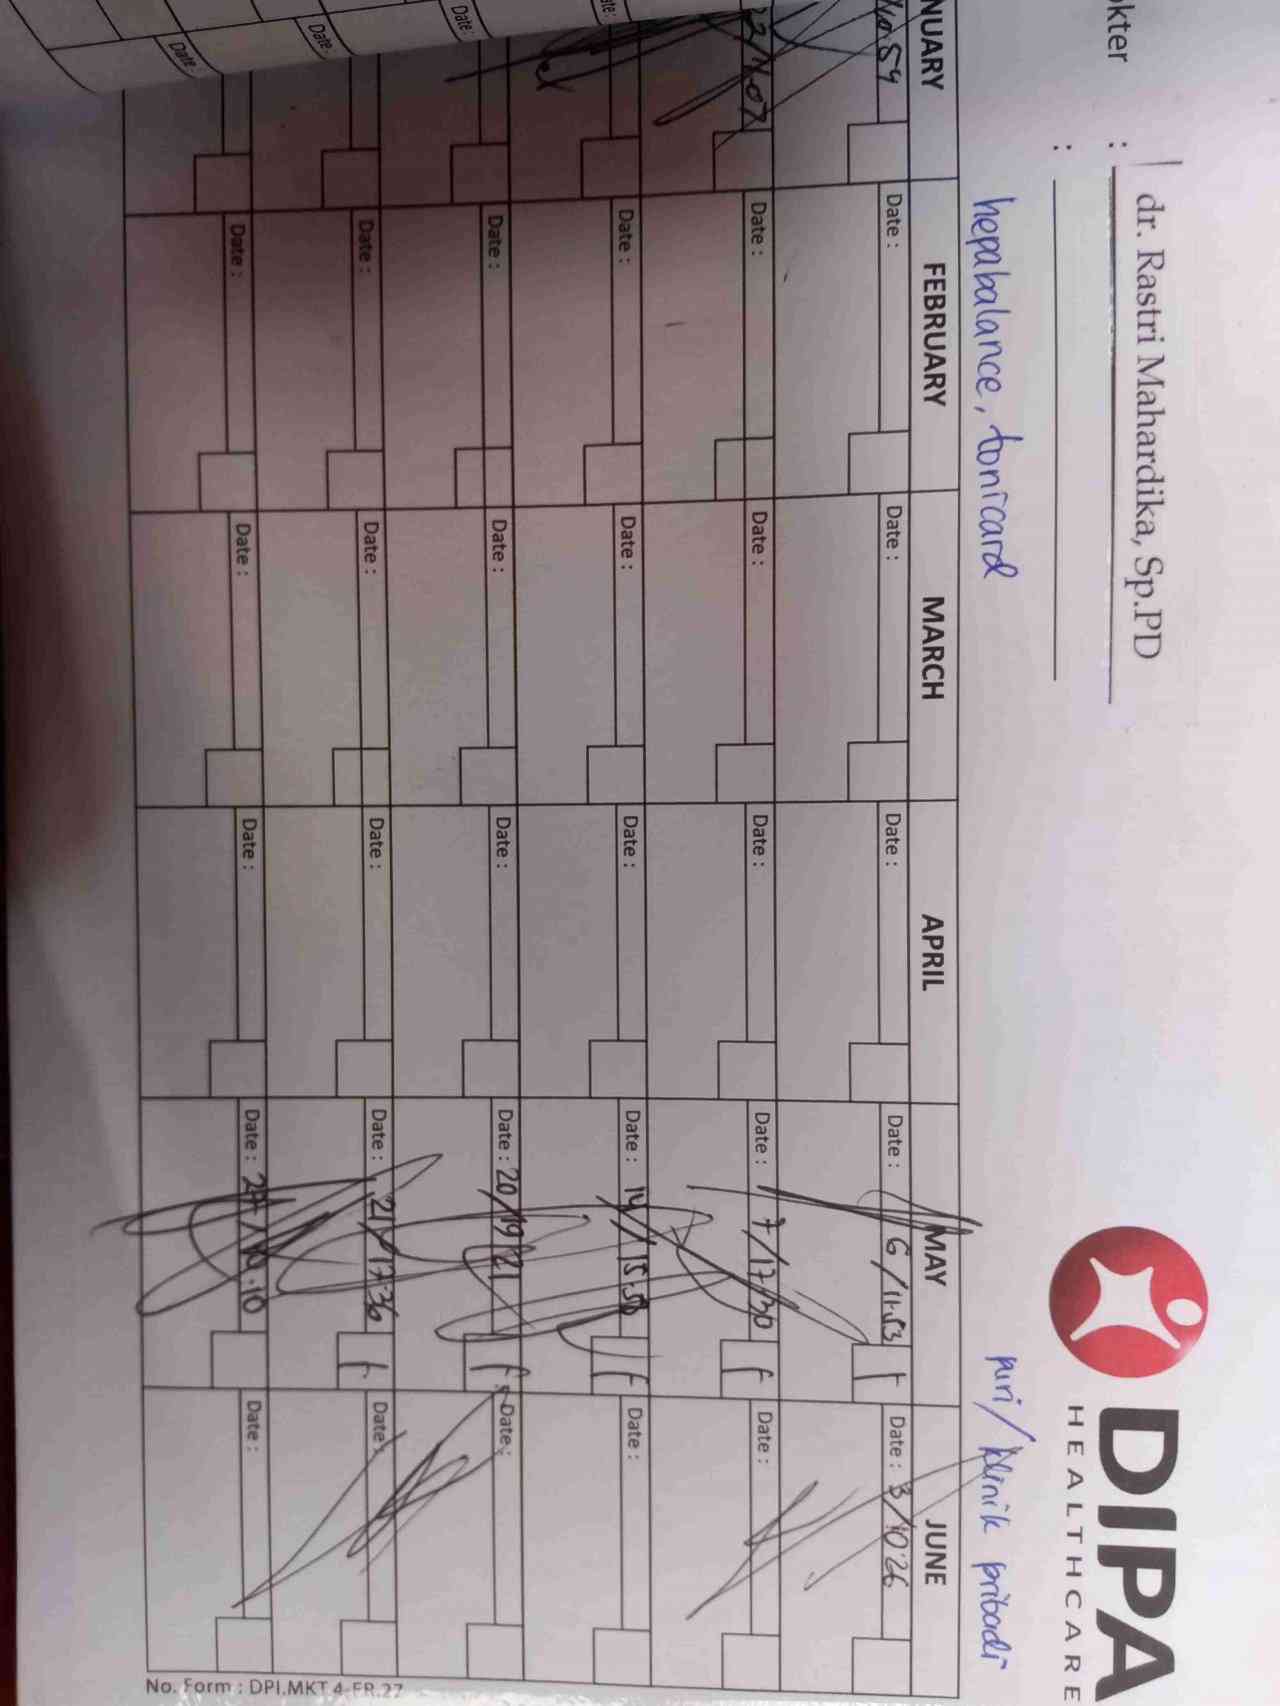 DIPA
HEALTHCARE
okter : dr. Rastri Mahardika, Sp.PD
:
hepabalance, tonicard
puri/klinik pribadi
NUARY FEBRUARY MARCH APRIL MAY JUNE
Date : Date : Date : Date : 6/11.53 f Date : 3/10.26
Date : Date : Date : Date : 7/17.30 f Date :
Date : Date : Date : Date : 14/15.50 f Date :
Date : Date : Date : Date : 20/19.21 f Date :
Date : Date : Date : Date : 21/17.36 f Date :
Date : Date : Date : Date : Date :
Date :
Date :
Date :
No. Form : DPI.MKT 4-FR.27